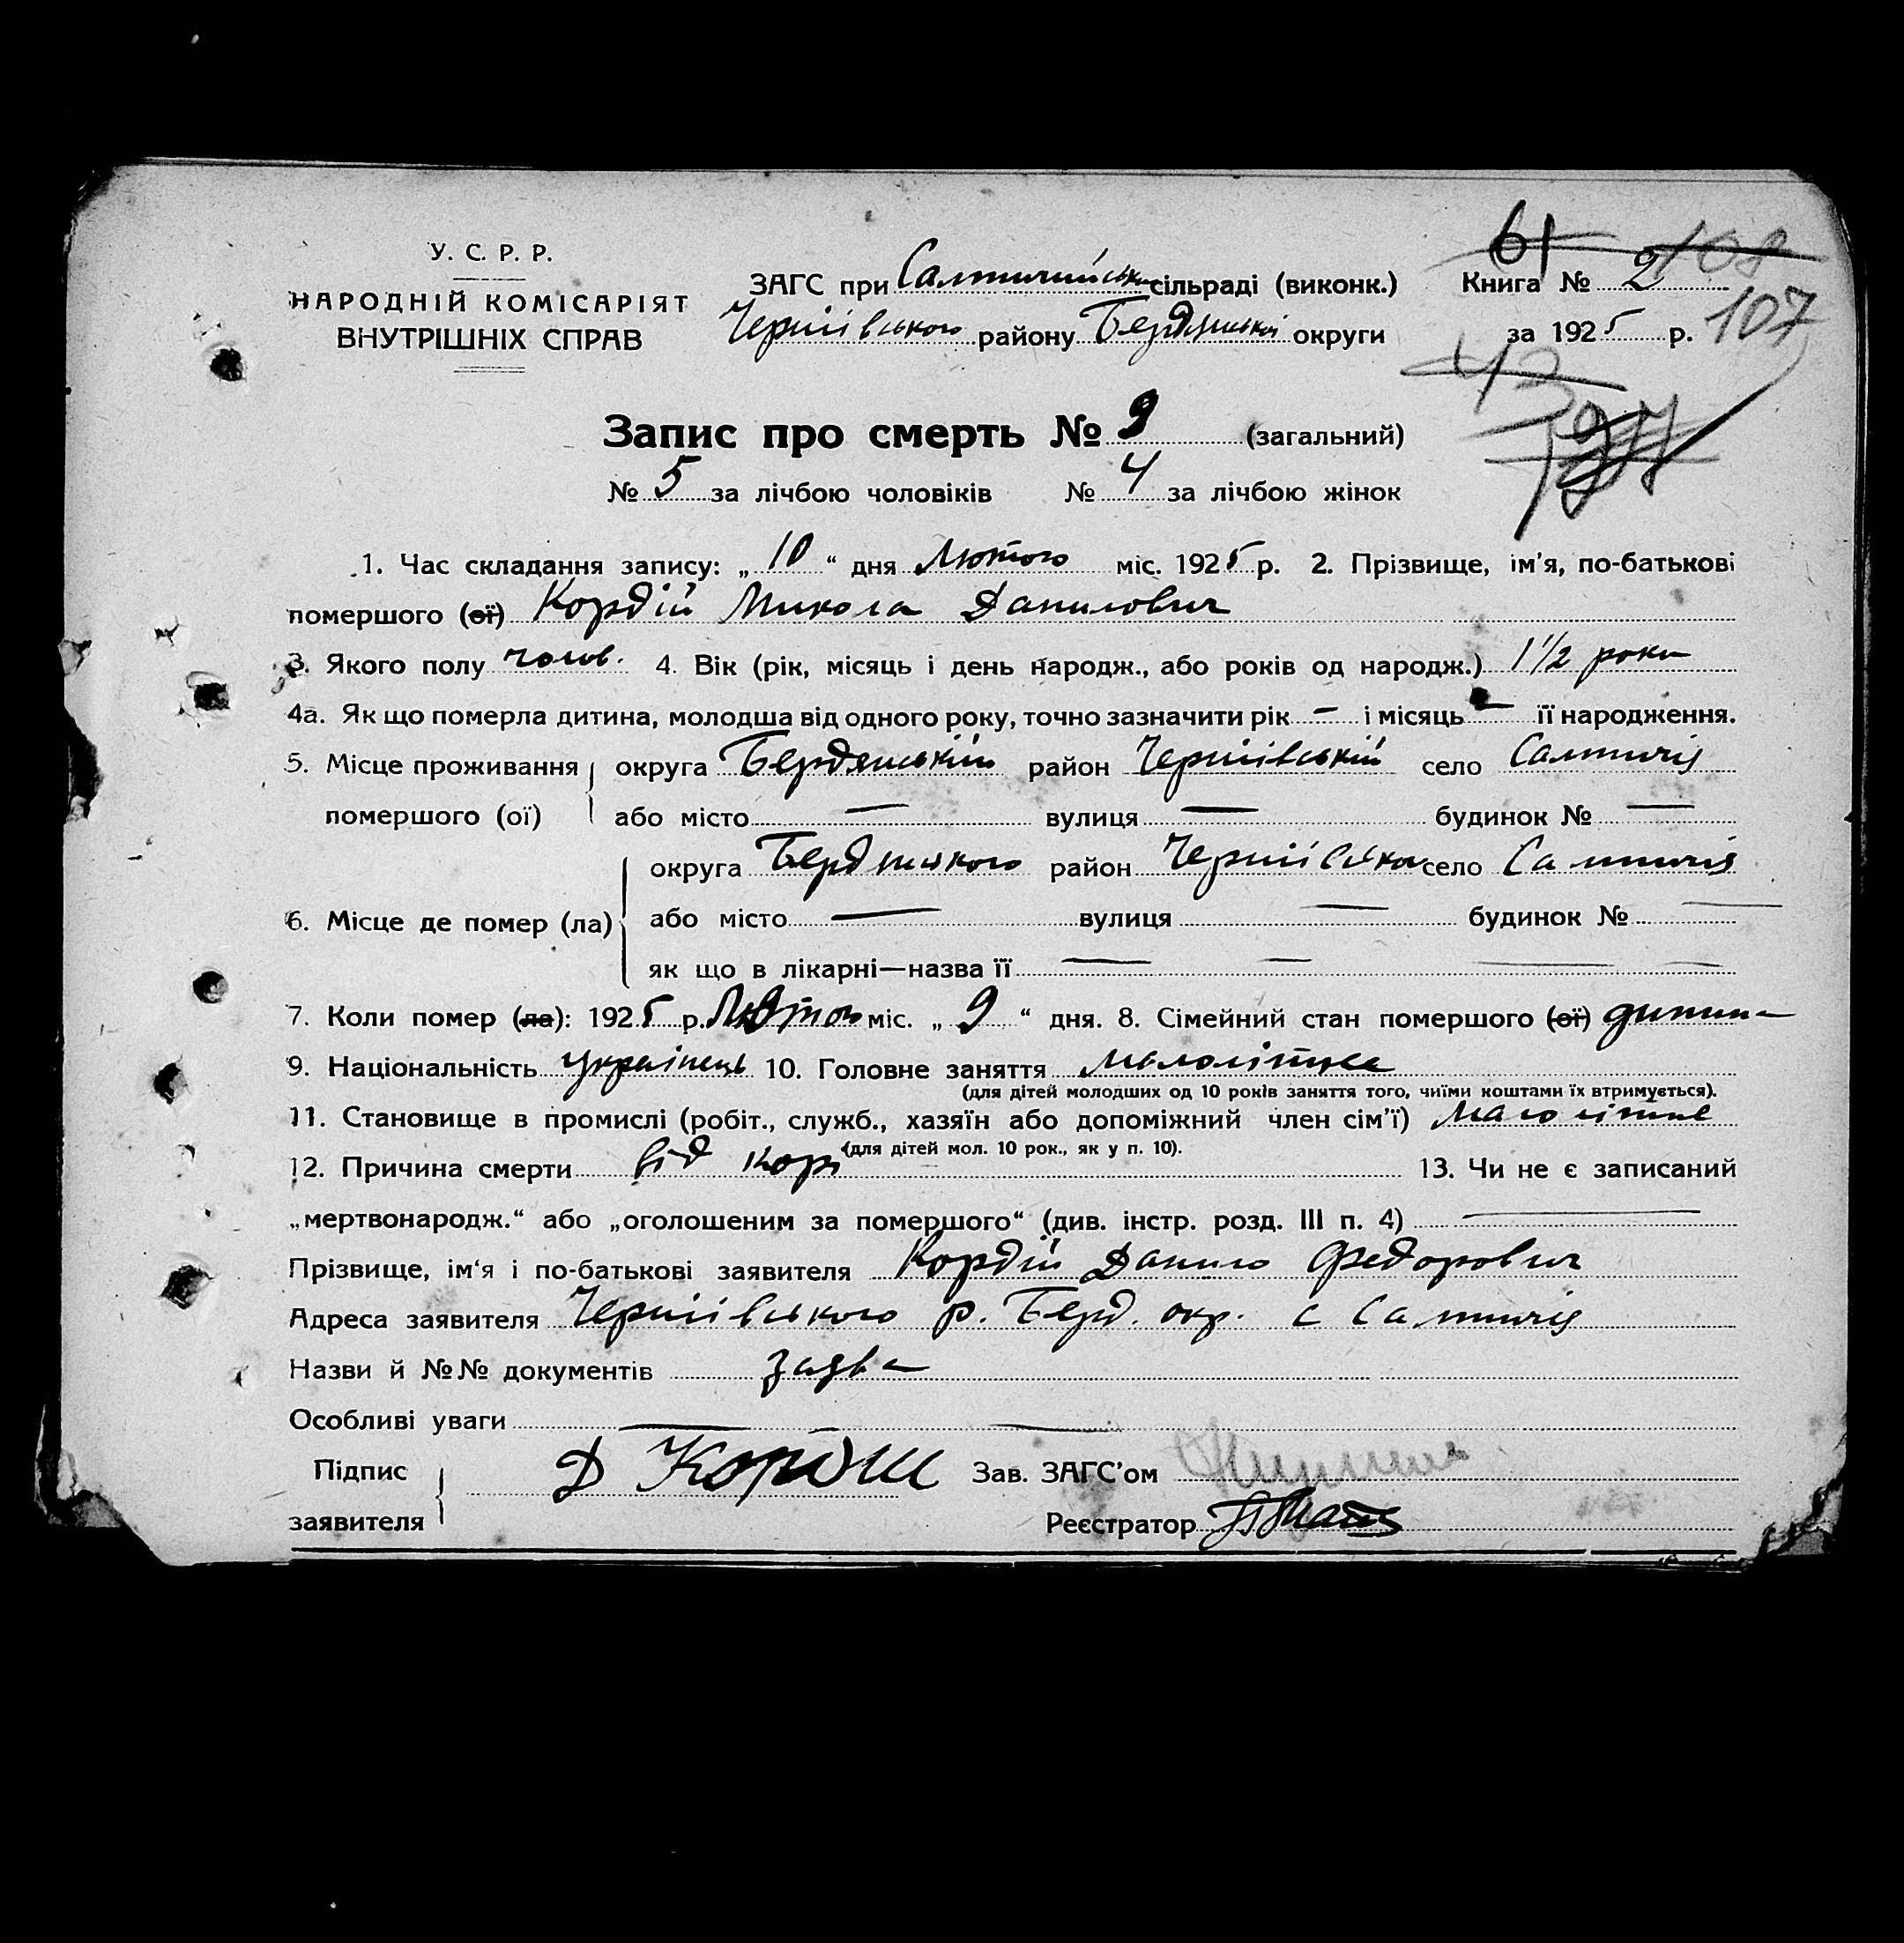 У. С. Р. Р.
НАРОДНІЙ КОМІСАРІЯТ
ВНУТРІШНІХ СПРАВ
ЗАГС при Салтичійськ сільраді (виконк.)
Чернігівського району Бердянської округи
61 108
Книга № 2
за 1925 р. 107
43
Запис про смерть № 9 (загальний)
№ 5 за лічбою чоловіків № 4 за лічбою жінок
1. Час складання запису: „ 10 “ дня Лютого міс. 1925 р. 2. Прізвище, ім'я, по-батькові
помершого (ої) Кордій Микола Данилович
3. Якого полу чолов. 4. Вік (рік, місяць і день народж., або років од народж.) 1 1/2 роки
4а. Як що померла дитина, молодша від одного року, точно зазначити рік – і місяць – її народження.
5. Місце проживання помершого (ої) округа Бердянський район Чернігівський село Салтичія
або місто — вулиця — будинок № —
6. Місце де помер (ла) округа Бердянського район Чернігівсько село Салтичія
або місто — вулиця — будинок № —
як що в лікарні—назва її — — — —
7. Коли помер (ла): 1925 р. Лютого міс. „ 9 “ дня. 8. Сімейний стан помершого (ої) дитина
9. Національність українець 10. Головне заняття малолітнє
(для дітей молодших од 10 років заняття того, чиїми коштами їх втримується).
11. Становище в промислі (робіт., служб., хазяїн або допоміжний член сім'ї) малолітнє
(для дітей мол. 10 рок., як у п. 10).
12. Причина смерти від корі 13. Чи не є записаний
„мертвонародж.“ або „оголошеним за помершого“ (див. інстр. розд. III п. 4) —
Прізвище, ім'я і по-батькові заявителя Кордій Данило Федорович
Адреса заявителя Чернігівського р. Берд. окр. с Салтичія
Назви й №№ документів заява
Особливі уваги — —
Підпис заявителя Д Кордій Зав. ЗАГС'ом
Реєстратор